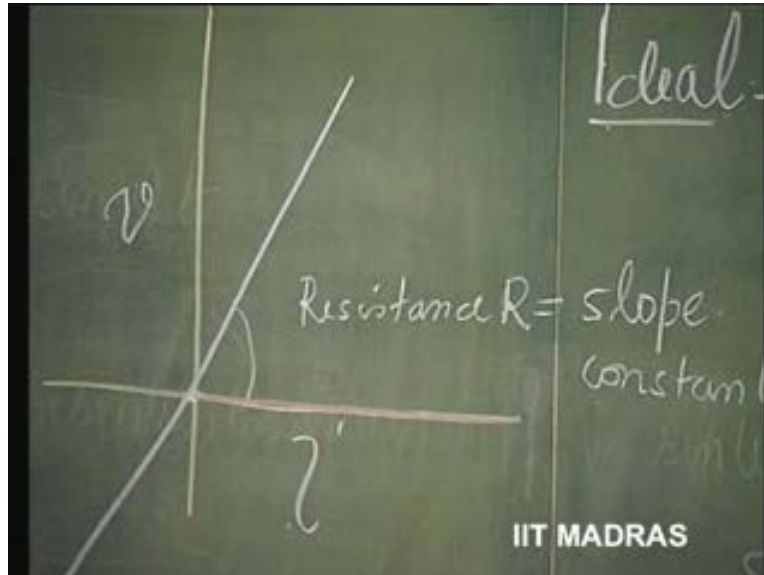 Ideal
v
Resistance R = slope
constant
i
IIT MADRAS